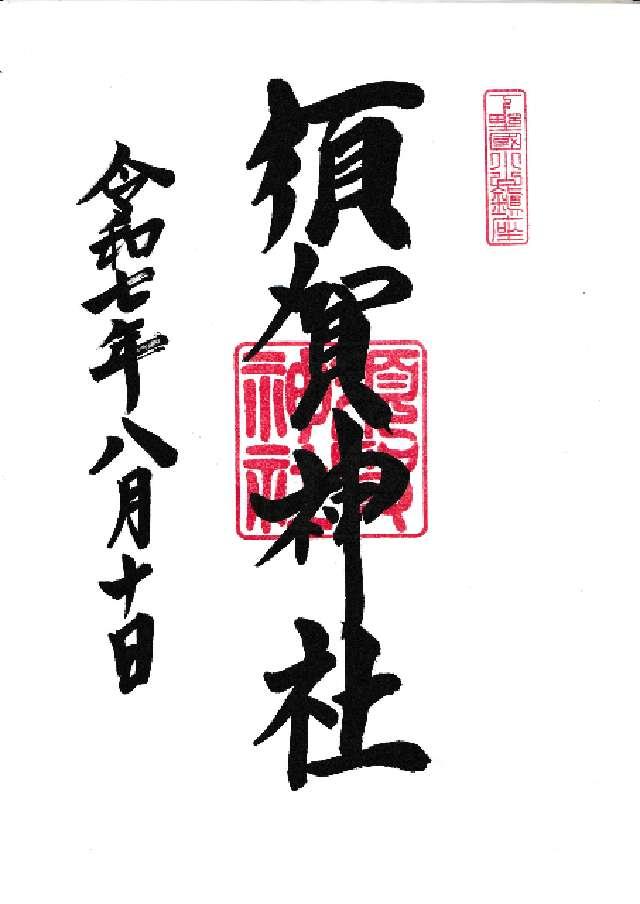 下野國小山鎮座
須賀神社
須賀神社
令和七年八月十日